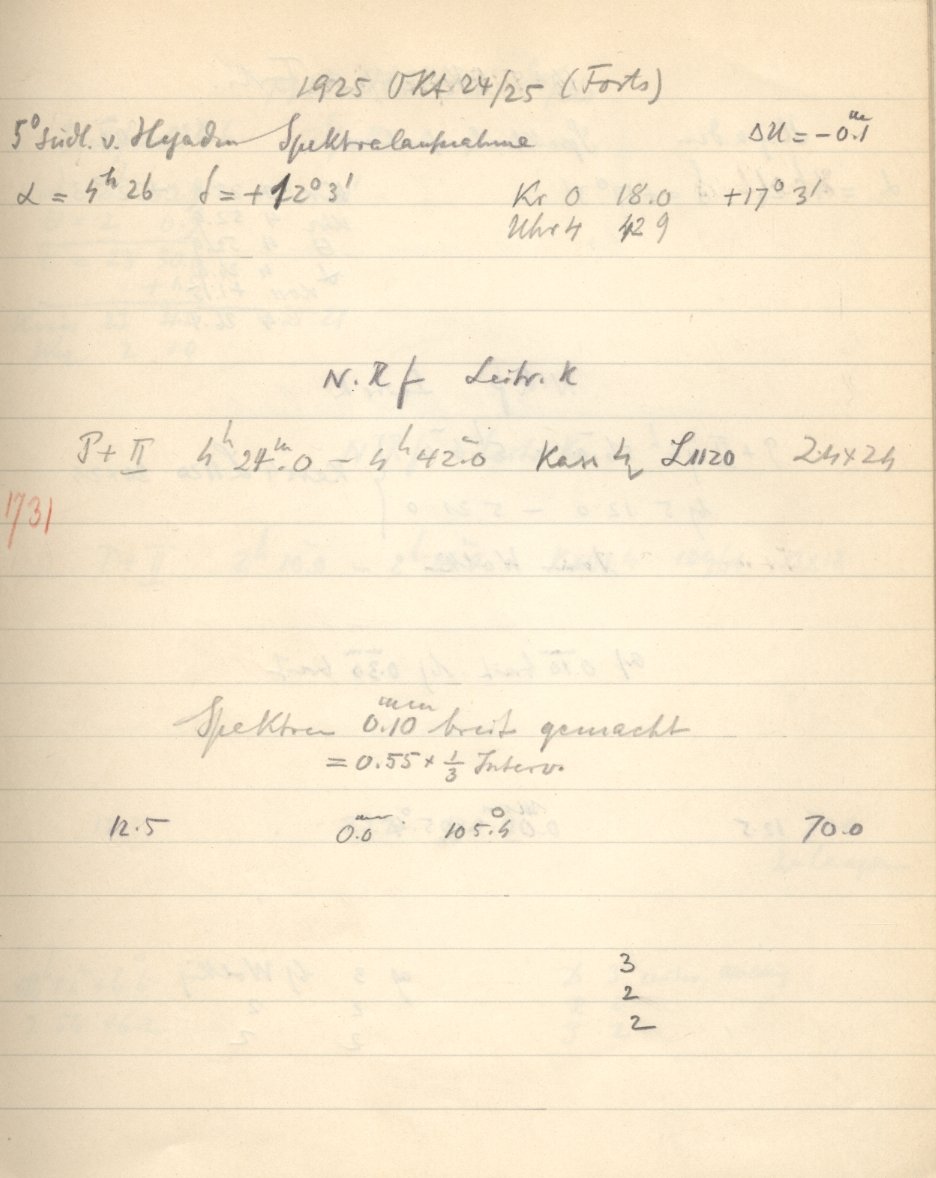 1925 Okt 24/25 (Forts)
5° südl. v. Hyaden Spektralaufnahme ΔU = -0.1 m
α = 4h 26 δ = +12° 3' Kr 0 18.0 +17° 3'
Uhr 4 42 9
N. R f Leitr. K
P + II 4h 24m.0 - 4h 42m.0 Kass L1120 24x24
1731
Spektren 0.10 mm breit gemacht
= 0.55 x 1/3 Interv.
12.5 0.0 mm 105.4° 70.0
3
2
2